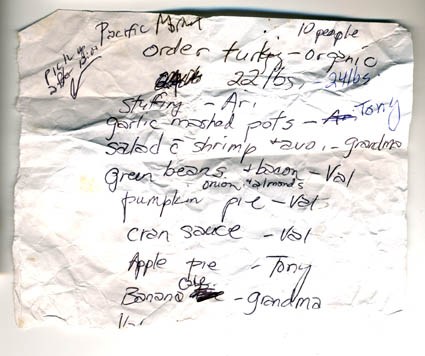 Pacific Market
10 people
Pick up
order turkey - organic
22 lbs. - 24 lbs
stuffing - Ari
garlic mashed pots - Tony
salad c̄ shrimp + avo. - grandma
green beans + bacon - Val
onion + almonds
pumpkin pie - Val
cran sauce - Val
Apple pie - Tony
Banana Cake - grandma